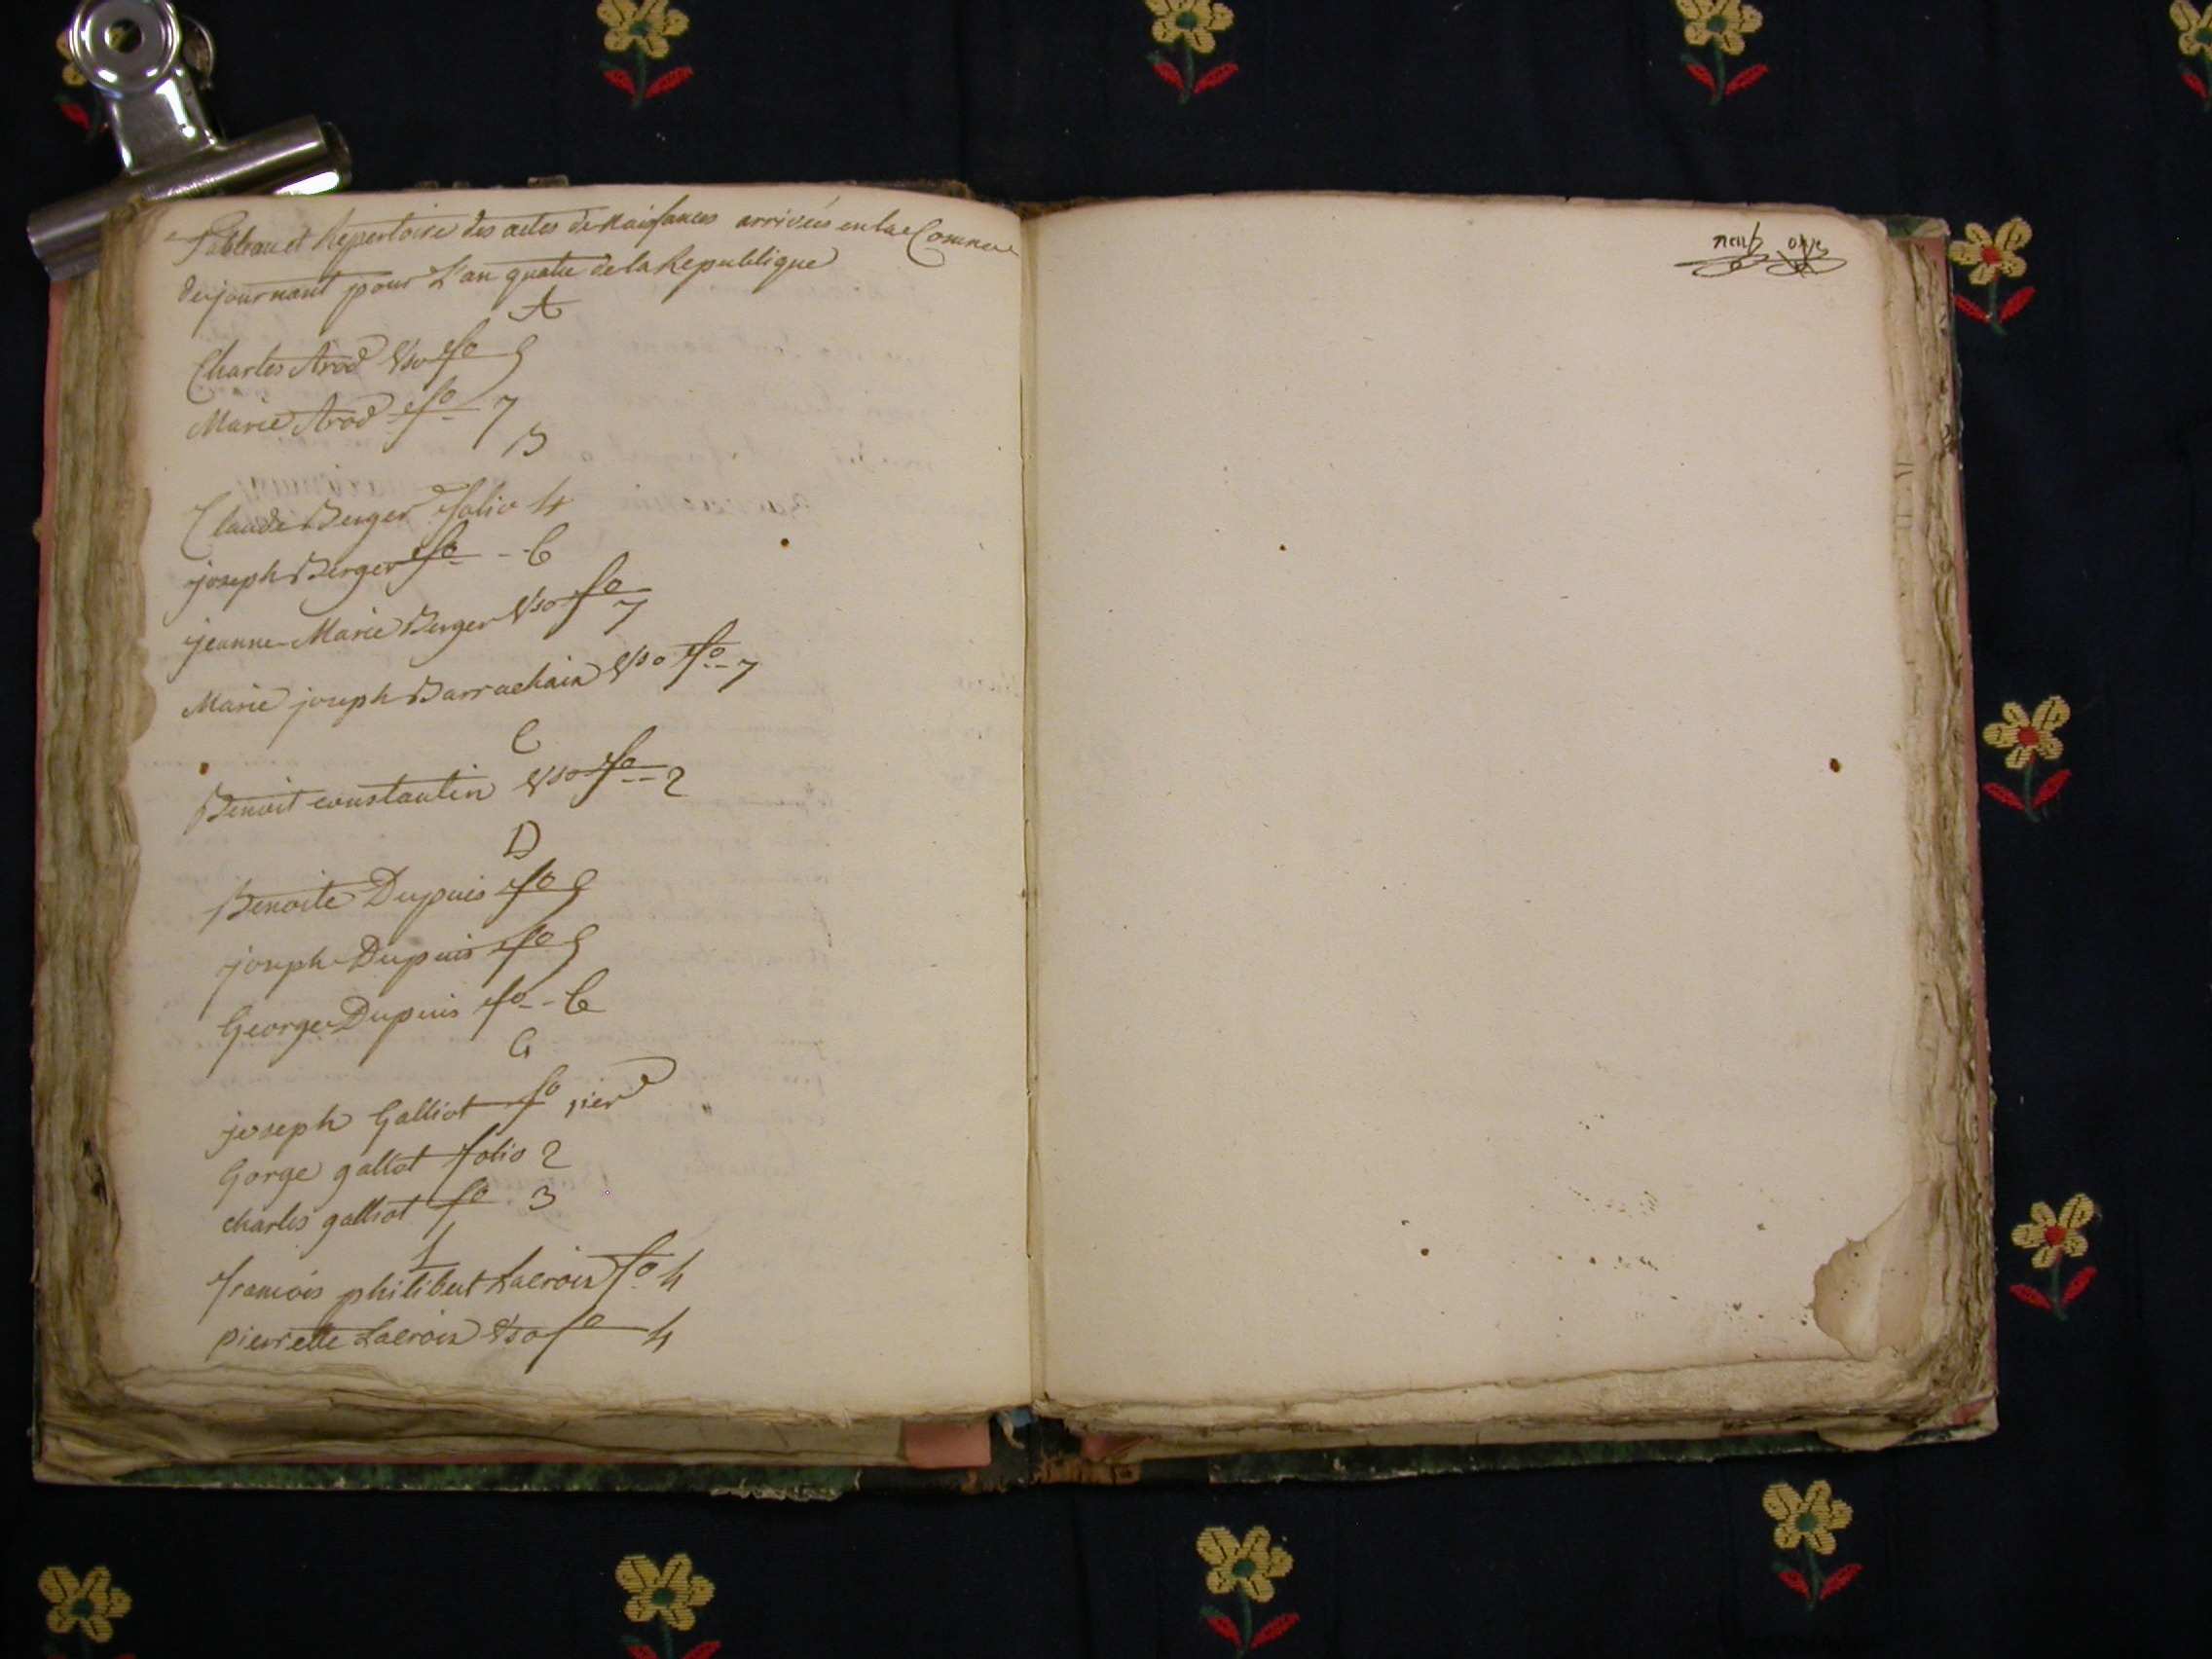 Tableau et Repertoire des actes de Naissances arrivées en la Commune
de journant pour L'an quatre de la Republique
A
Charles Arod Vso fo 5
Marie Arod fo 7
B
Claude Berger folio 4
joseph Berger fo 6
jeanne Marie Berger Vso fo 7
Marie joseph Barrachain Vso fo 7
C
Benoit constantin Vso fo 2
D
Benoite Dupuis fo 5
joseph Dupuis fo 5
George Dupuis fo 6
G
joseph Galliot fo 1ier
Gorge galliot folio 2
charles galliot fo 3
L
francois philibert Lacroix fo 4
pierrette Lacroix Vso fo 4
neuf